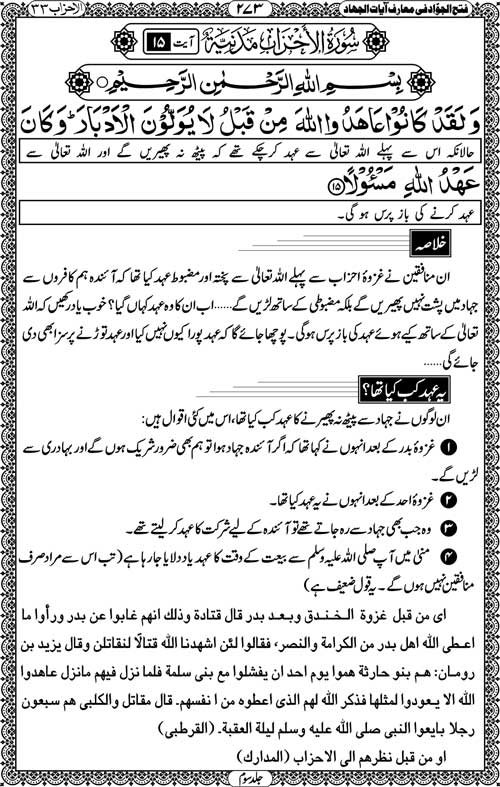 فتح الجوّاد فی معارف آیات الجهاد
۲۷۳
الاحزاب ۳۳
سُوْرَةُ الْاَحْزَابِ مَدَنِیَّةٌ
آیت ۱۵
بِسْمِ اللهِ الرَّحْمٰنِ الرَّحِیْمِ
وَلَقَدْ كَانُوْا عَاهَدُوا اللهَ مِنْ قَبْلُ لَا یُوَلُّوْنَ الْاَدْبَارَ ؕ وَكَانَ
حالانکہ اس سے پہلے اللہ تعالیٰ سے عہد کرچکے تھے کہ پیٹھ نہ پھیریں گے اور اللہ تعالیٰ سے
عَهْدُ اللهِ مَسْـُٔوْلًا ۱۵
عہد کرنے کی باز پرس ہو گی۔
خلاصہ
ان منافقین نے غزوۂ احزاب سے پہلے اللہ تعالیٰ سے پختہ اور مضبوط عہد کیا تھا کہ آئندہ ہم کافروں سے
جہاد میں پشت نہیں پھیریں گے بلکہ مضبوطی کے ساتھ لڑیں گے……اب ان کا وہ عہد کہاں گیا؟ خوب یاد رکھیں کہ اللہ
تعالیٰ کے ساتھ کیے ہوئے عہد کی باز پرس ہوگی۔ پوچھا جائے گا کہ عہد پورا کیوں نہیں کیا اور عہد توڑنے پر سزا بھی دی
جائے گی……
یہ عہد کب کیا تھا؟
ان لوگوں نے جہاد سے پیٹھ نہ پھیرنے کا عہد کب کیا تھا، اس میں کئی اقوال ہیں:
۱ غزوۂ بدر کے بعد انہوں نے کہا تھا کہ اگر آئندہ جہاد ہوا تو ہم بھی ضرور شریک ہوں گے اور بہادری سے
لڑیں گے۔
۲ غزوۂ احد کے بعد انہوں نے یہ عہد کیا تھا۔
۳ وہ جب بھی جہاد سے رہ جاتے تھے تو آئندہ کے لیے شرکت کا عہد کر لیتے تھے۔
۴ منیٰ میں آپ صلی اللہ علیہ وسلم سے بیعت کے وقت کا عہد یاد دلایا جا رہا ہے (تب اس سے مراد صرف
منافقین نہیں ہوں گے۔ یہ قول ضعیف ہے)
ای من قبل غزوة الخندق وبعد بدر قال قتادة وذلك انهم غابوا عن بدر ورأوا ما
اعطى الله اهل بدر من الكرامة والنصر، فقالوا لئن اشهدنا الله قتالًا لنقاتلن وقال یزید بن
رومان: هم بنو حارثة هموا یوم احد ان یفشلوا مع بنی سلمة فلما نزل فیهم مانزل عاهدوا
الله الا یعودوا لمثلها فذكر الله لهم الذی اعطوه من انفسهم۔ قال مقاتل والكلبی هم سبعون
رجلا بایعوا النبی صلی الله علیه وسلم لیلة العقبة۔ (القرطبی)
او من قبل نظرهم الی الاحزاب (المدارك)
جلد سوم